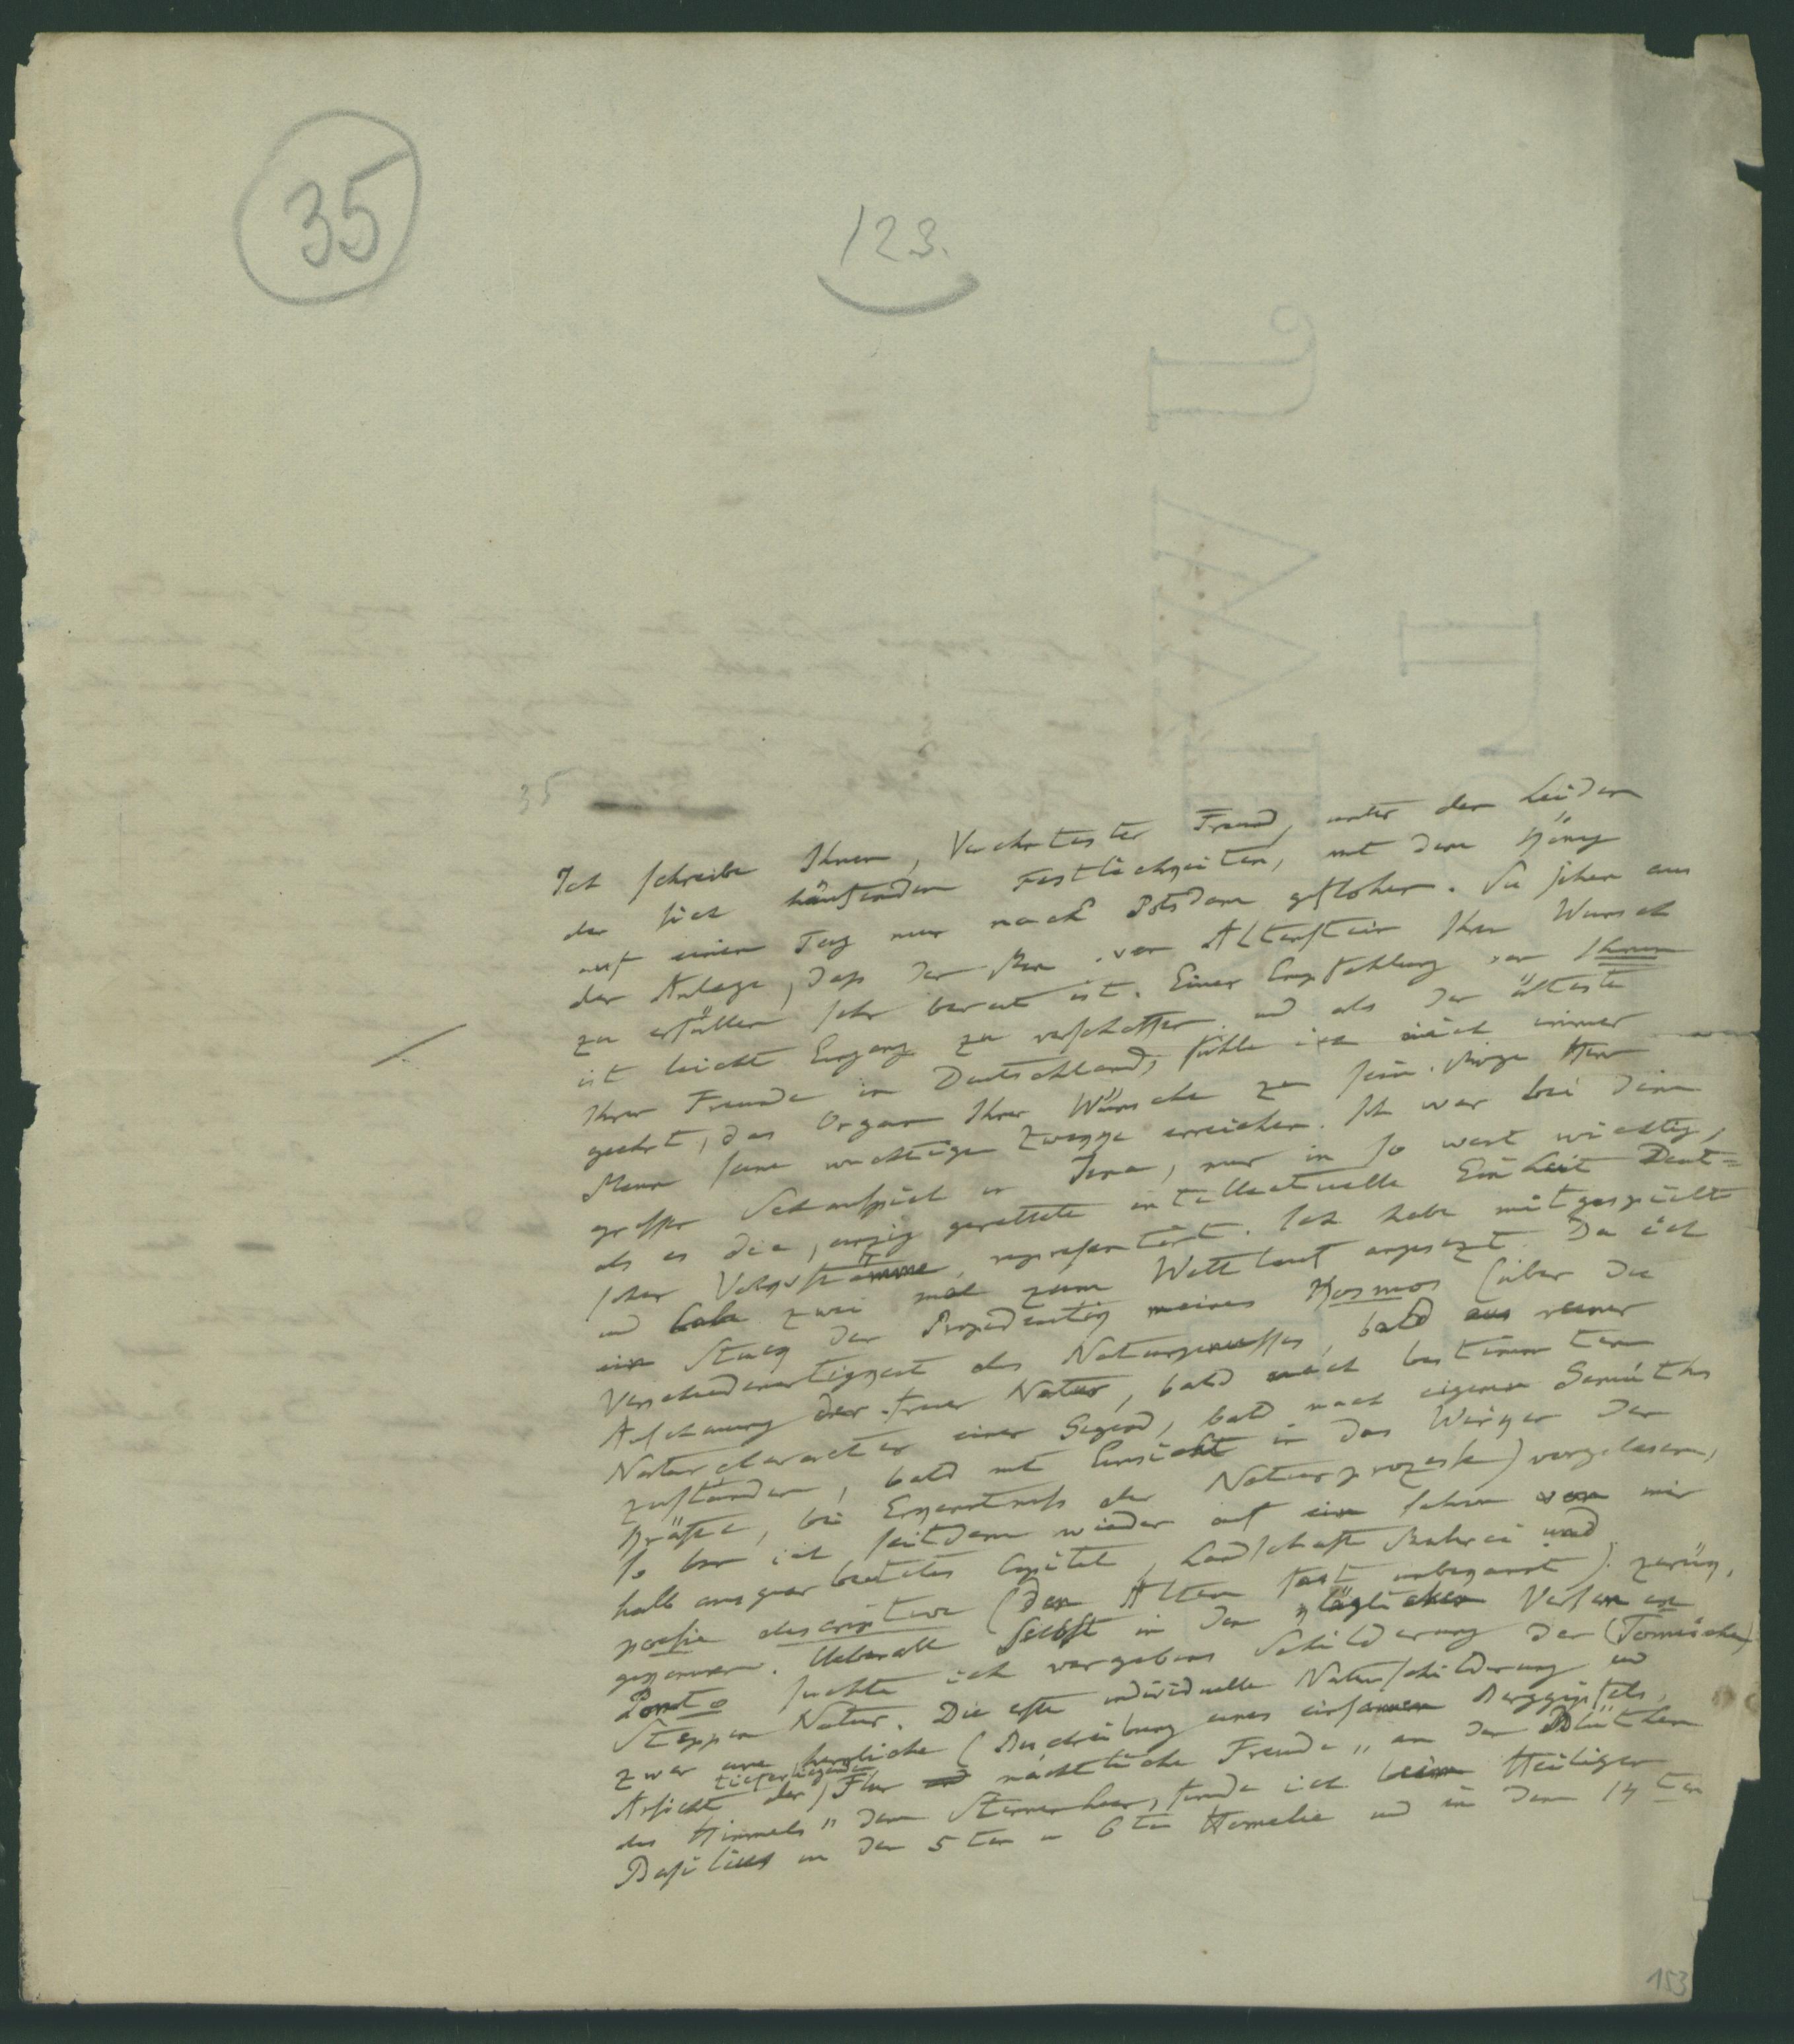 35
123.
35
Ich schreibe Ihnen, Verehrtester Freund, unter den Leiden
der sich häufenden Festlichkeiten, mit dem König
auf einen Tag nur nach Potsdam geflohen. Sie sehen aus
der Anlage, dass der Min. von Altenstein Ihren Wunsch
zu erfüllen sehr bereit ist. Einer Empfehlung von Ihnen
ist leicht Eingang zu verschaffen und als der älteste
Ihrer Freunde in Deutschland, fühle ich mich immer
geehrt, das Organ Ihrer Wünsche zu sein. Möge Herr
Mann seine wichtigen Zwekke erreichen. Ich war bei dem
grossen Schauspiel in Jena, nur in so weit wichtig,
als es die, einzig gerettete intellectuelle Einheit Deut=
scher Volksstämme, repräsentirt. Ich habe mitgespielt
und habe zwei mal zum Wettlauf angesezt. Da ich
ein Stück der Prosdeutik meines Kosmos (über die
Verschiedenartigkeit des Naturgenusses, bald aus reiner
Anschauung der freien Natur, bald nach bestimmtem
Naturcharacter einer Gegend, bald nach eigenen Gemüths
zuständen, bald mit Einsicht in das Wirken der
Kräfte, bei Erkenntniss der Naturprozesse) vorgelesen,
so bin ich seitdem wieder auf ein schon von mir
halb ausgearbeitetes Capitel, Landschaft Malerei und
poesie descriptive (den Alten fast unbekannt) zurük,
gekommen. Ueberall selbst in den kläglichen Versen ex
Ponto suchte ich vergebens Schilderung der (Tomischen)
Steppen Natur. Die erste individuelle Naturschilderung und
zwar eine herrliche (Beschreibung eines einsamen Berggipfels,
Ansicht der tieferliegenden Flur und nächtliche Freude „an den Blüthen
des Himmels" dem Sternenheer, finde ich beim Heiligen
Basilius in der 5ten u 6ten Homelie und in dem 14ten
153